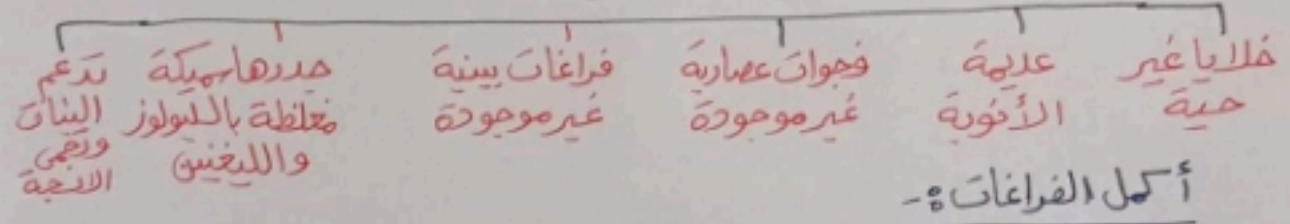 خلايا غير حية
عديمة الأنوية
فجوات عصارية غير موجودة
فراغات بينية غير موجودة
جدرها سميكة مغلظة بالسليولوز والليغنين
تدعم النبات وتحمي الانسجة
أكمل الفراغات :-